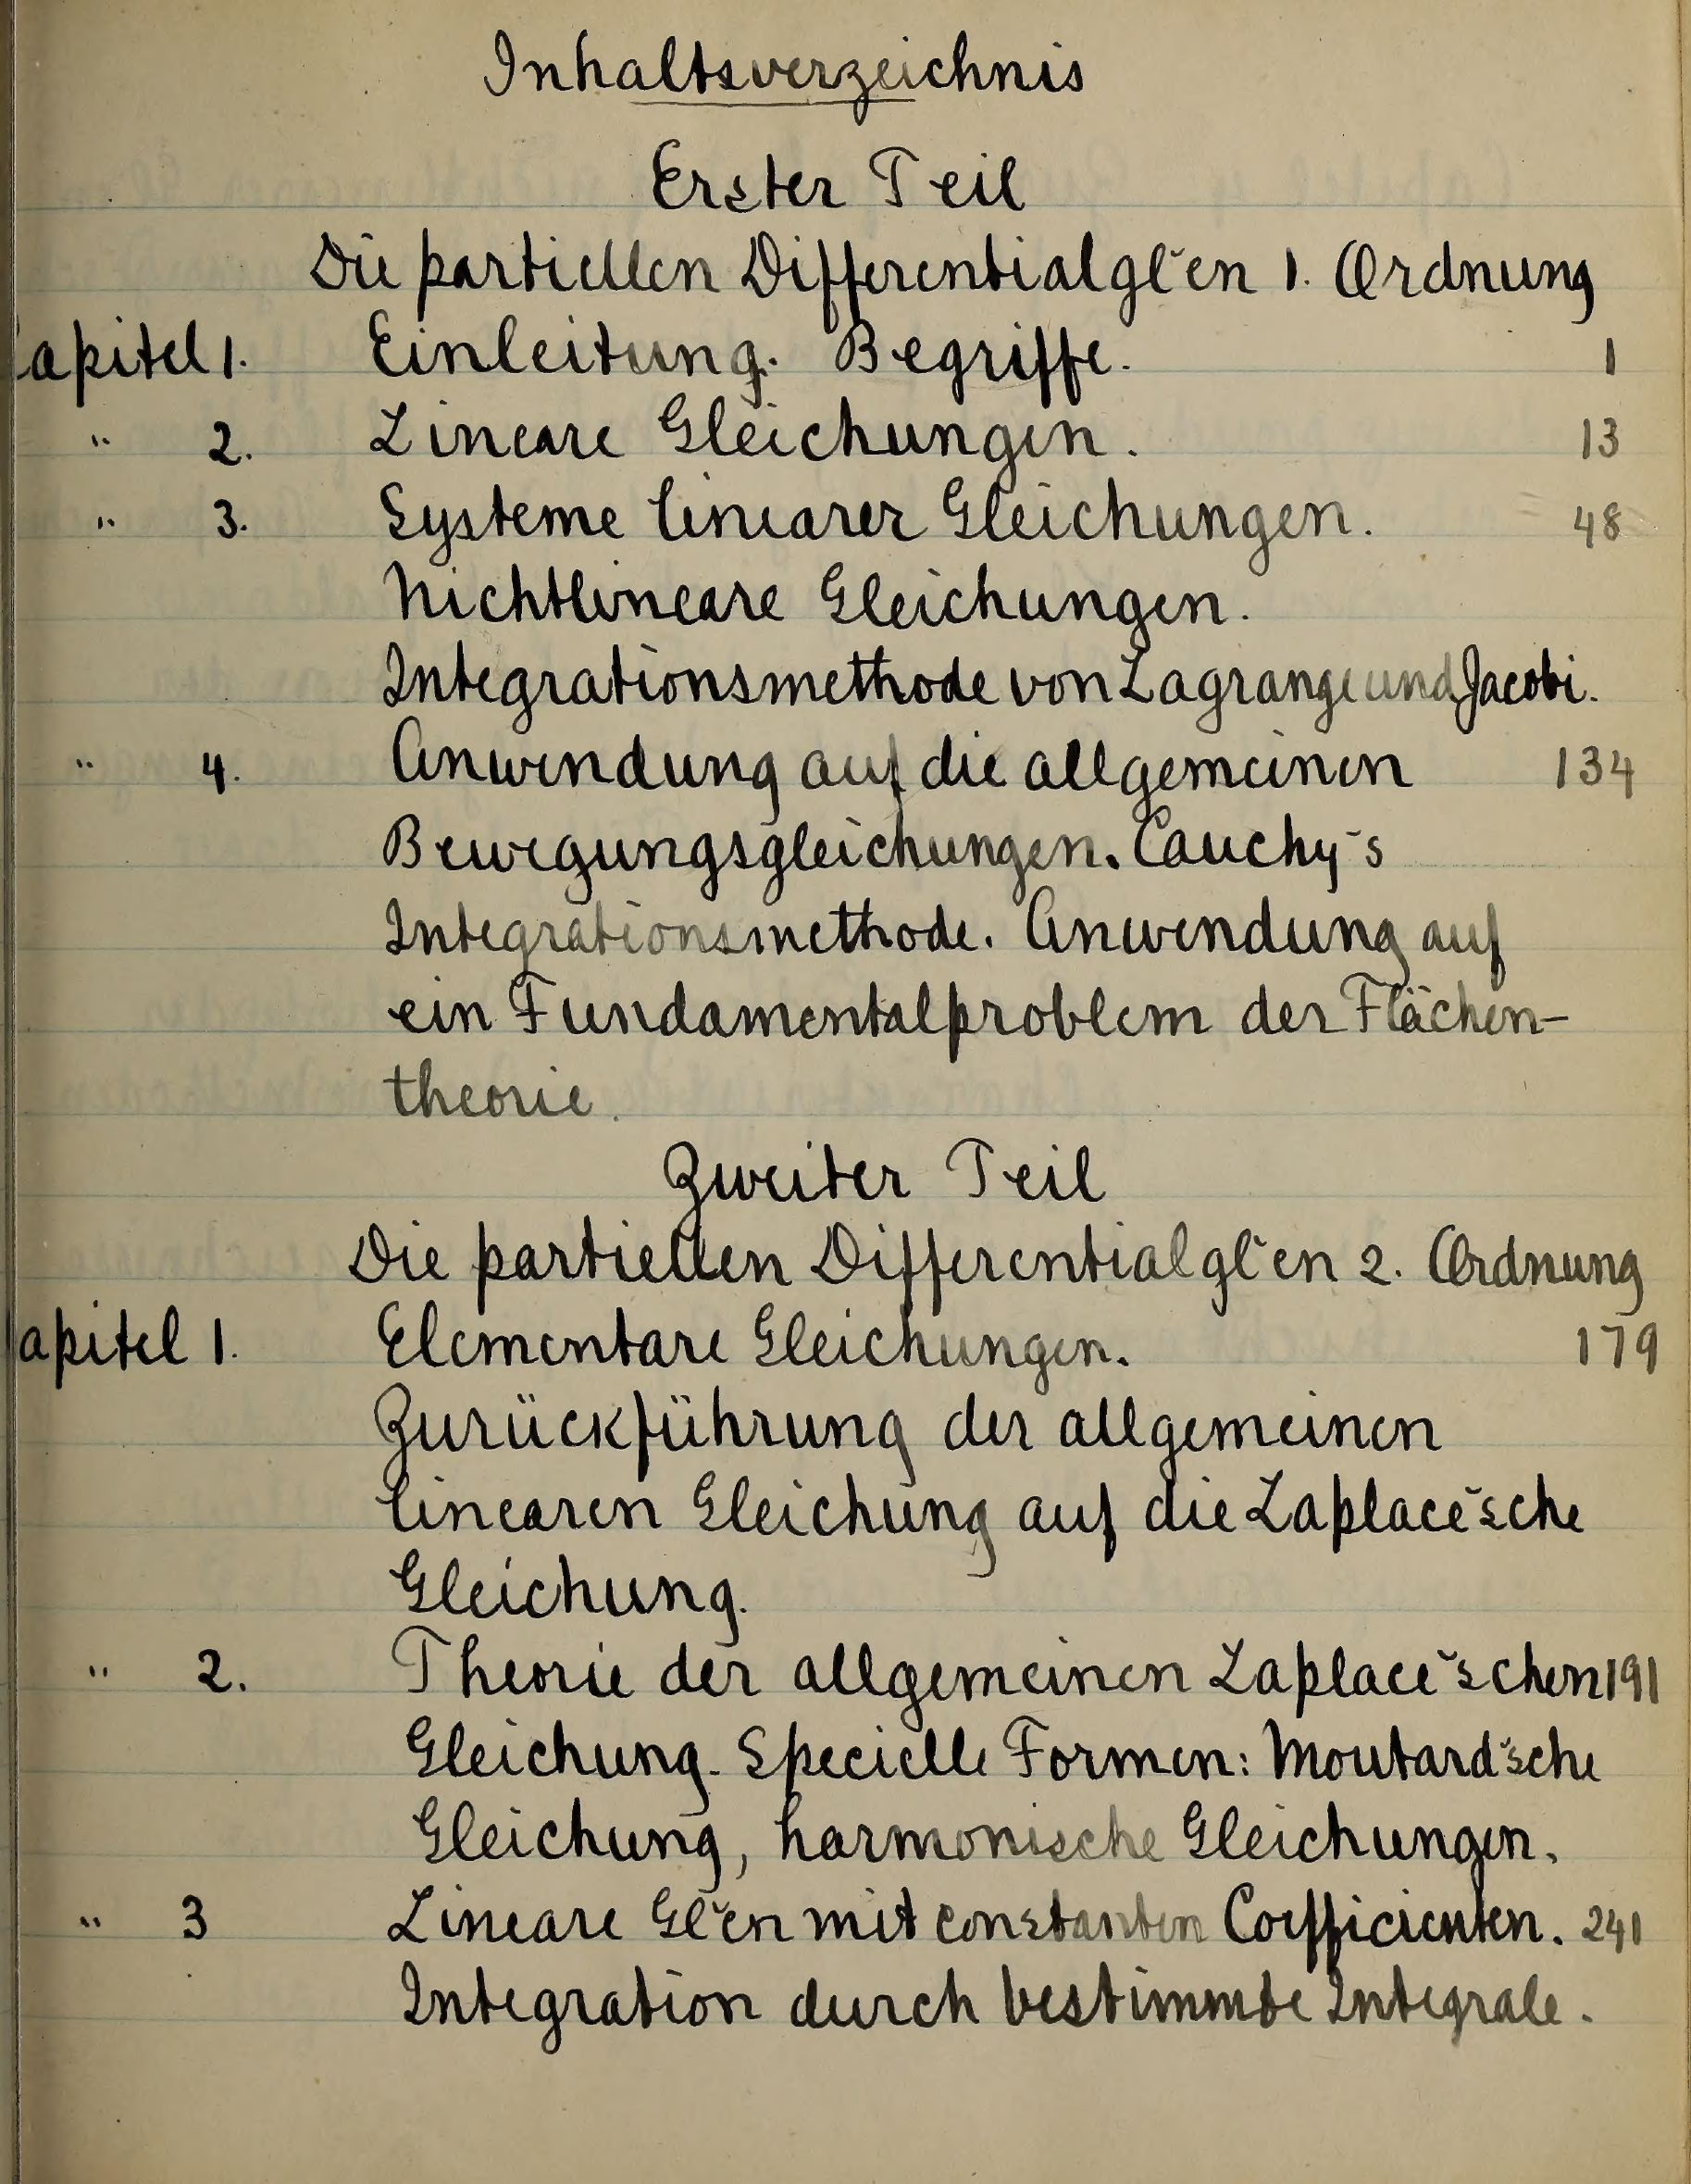 Inhaltsverzeichnis
Erster Teil
Die partiellen Differentialgl~en 1. Ordnung
apitel 1. Einleitung. Begriffe. 1
" 2. Lineare Gleichungen. 13
" 3. Systeme linearer Gleichungen. 48
Nichtlineare Gleichungen.
Integrationsmethode von Lagrange und Jacobi.
" 4. Anwendung auf die allgemeinen 134
Bewegungsgleichungen. Cauchy's
Integrationsmethode. Anwendung auf
ein Fundamentalproblem der Flächen-
theorie.
Zweiter Teil
Die partiellen Differentialgl~en 2. Ordnung
apitel 1. Elementare Gleichungen. 179
Zurückführung der allgemeinen
linearen Gleichung auf die Laplace'sche
Gleichung.
" 2. Theorie der allgemeinen Laplace'schen 191
Gleichung. Specielle Formen: Moutard'sche
Gleichung, harmonische Gleichungen.
" 3 Lineare Gl~en mit constanten Coefficienten. 241
Integration durch bestimmte Integrale.